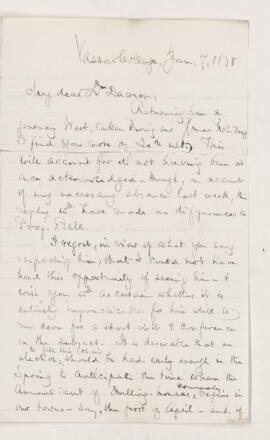 Vassar College, Jan. 7, 1878
My dear Dr Dawson,
Returning from a
journey West, taken during our Xmas holidays
I find your note of 20th ult. This
will account for its not having been at
once acknowledged - though, on account
of my necessary absence last week, the
reply wd have made no difference to
Prof. Bell.
I regret, in view of what you say
respecting him, that I could not have
had this opportunity of seeing him - &
wish you wd ascertain whether it is
entirely impracticable for him still to
run down for a short visit & conference
on the subject. It is desirable that an
to fill this chair
election should be had early enough in the
Spring to anticipate the time when the
annual rent of dwelling-houses, begins in
our town - say, the first of April - and of